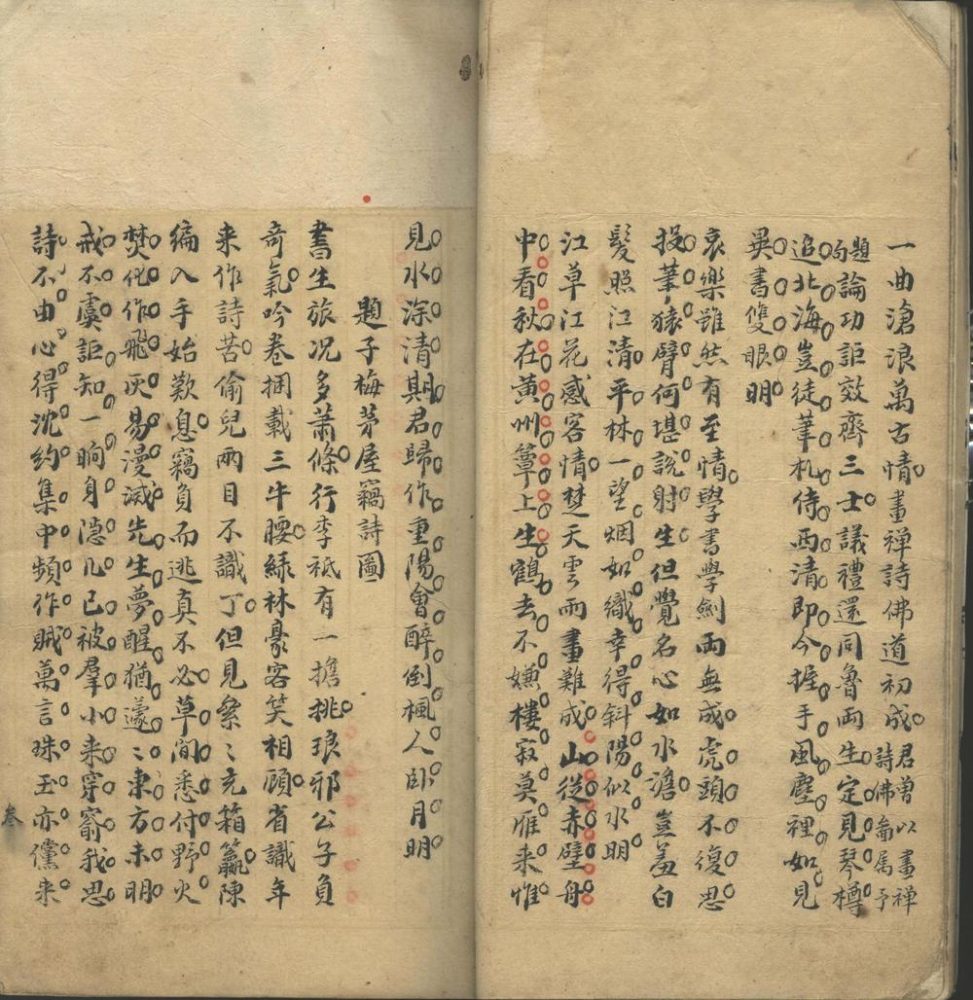 一曲滄浪萬古情畫禪詩佛道初成君曾以畫禪詩佛額屬予
題句論功詎效齊三士議禮還同魯兩生定見琴樽
追北海豈徒筆札侍西清即今握手風塵裡如見
異書雙眼明
哀樂雖然有至情學書學劍兩無成虎頭不復思
投筆猿臂何堪說射生但覺名心如水澹豈羞白
髮照江清平林一望烟如織幸得斜陽似水明
江草江花感客情楚天雲雨畫難成山從赤壁舟
中看秋在黃州簟上生鶴去不嫌樓寂莫雁来惟
見水深清期君歸作重陽會醉倒楓人卧月明
題子梅茅屋竊詩圖
書生旅况多蕭條行李袛有一擔挑琅邪公子負
奇氣吟卷捆載三牛腰綠林豪客笑相顧省識年
来作詩苦偷兒兩目不識丁但見纍〻充箱籯陳
編入手始歎息竊負而逃真不必草間悉付野火
焚化作飛灰易漫滅先生夢醒猶蘧〻東方未明
戒不虞詎知一晌身隱几已被羣小来穿窬我思
詩不由心得沈約集中頻作賊萬言珠玉亦儻来